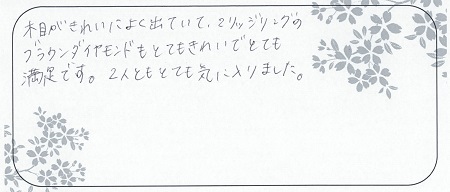 木目がきれいによく出ていて、エッジリングの
ブラウンダイヤモンドもとてもきれいでとても
満足です。2人ともとても気に入りました。